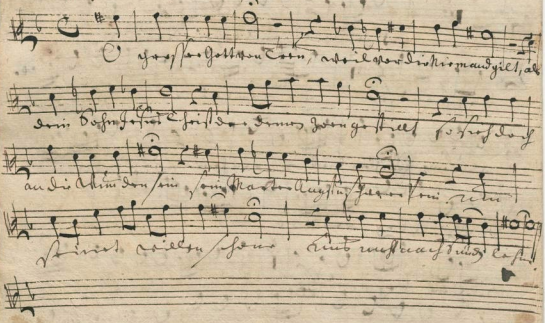 O grosser Gott von Treu, weil vor dir Niemand gilt, als
dein Sohn Jesus Christ der deinen Zorn gestillt so sieh doch
an die Wunden sein sein Marter Angst schwere Pein um
seinet willen schone uns nicht nach Sünden